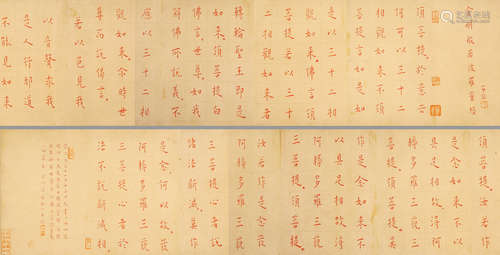 金剛般若波羅蜜經
須菩提於意云
何可以三十二
相觀如來不須
菩提言如是如
是以三十二相
觀如來佛言須
菩提若以三十
二相觀如來者
轉輪聖王即是
如來須菩提白
佛言世尊如我
解佛說義不
應以三十二相
觀如來爾時世
尊而說偈言
若以色見我
以音聲求我
是人行邪道
不能見如來
須菩提汝若作
是念如來不以
具足相故得阿
耨多羅三藐三
菩提須菩提莫
作是念如來不
以具足相故得
阿耨多羅三藐
三菩提須菩提
汝若作是念發
阿耨多羅三藐
三菩提心者說
諸法斷滅莫作
是念何以故發
阿耨多羅三藐
三菩提心者於
法不說斷滅相